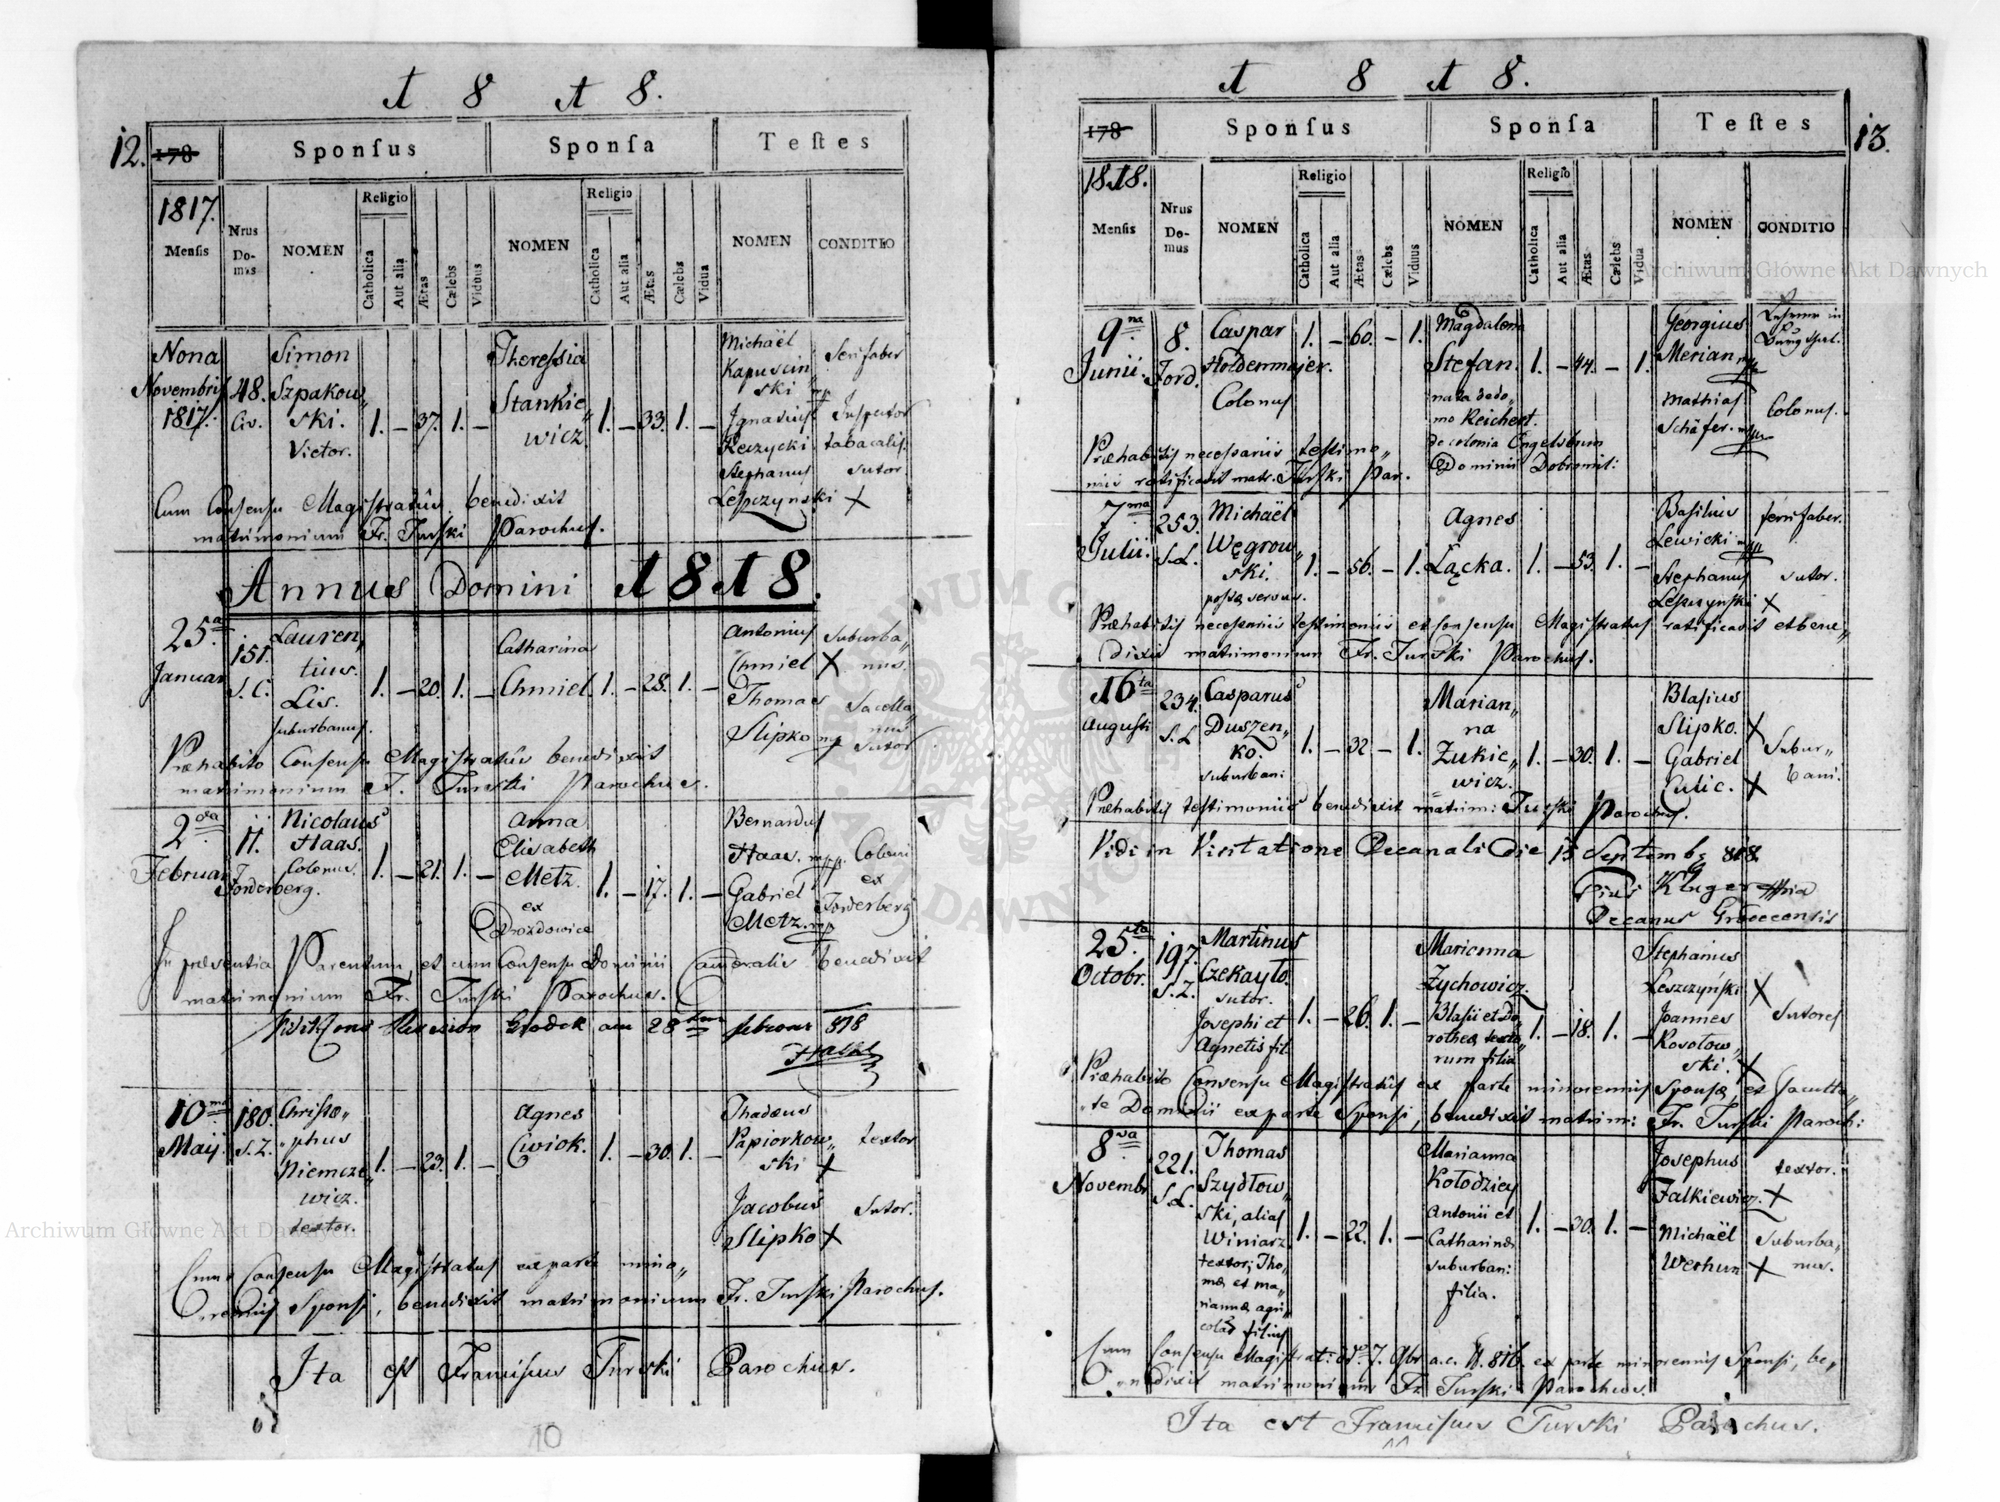 1 8 1 8.
12.
178
Sponſus
Sponſa
Teſtes
1817.
Menſis
Nrus Domus
NOMEN
Religio
Catholica
Aut alia
Ætas
Cælebs
Viduus
NOMEN
Religio
Catholica
Aut alia
Ætas
Cælebs
Vidua
NOMEN
CONDITIO
Nona Novembris 1817.
48. Civ.
Simon Szpakow„ ski. Victor.
1. – 37. 1. –
Theressia Stankie„ wicz
1. – 33. 1. –
Michaël Kapuscin„ ski mp
ferrifaber
Ignatius Reczycki
Inspector tabacalis.
Stephanus Leszczynski X
sutor
Cum Consensu Magistratûs benedixit
matrimonium Fr. Turski Parochus.
Annus Domini 1818.
25ta Januar
151. S. C.
Lauren„ tius. Lis. suburbanus.
1. – 20. 1. –
Catharina Chmiel.
1. – 28. 1. –
Antonius Chmiel X
suburba„ nus.
Thomas Slipko mp
sutor
Præhabito Consensu Magistratûs benedixit
matrimonium F. Turski Parochus.
2da Februar
11. Forderberg.
Nicolaus Haas. Colonus.
1. – 21. 1. –
Anna Elisabeth Metz. ex Drozdowice
1. – 17. 1. –
Bernardus Haas. mpp.
Gabriel Metz. mp
Coloni ex Forderberg
In præsentia Parentum, et cum Consensu Dominii Cameralis benedixit
matrimonium Fr. Turski Parochus.
Grodek am 28ten februar 818
10ma Maij.
180. S. Z.
Christo„ phus Niemcze„ wicz. textor.
1. – 23. 1. –
Agnes Cwiok.
1. – 30. 1. –
Thadæus Papiorkow„ ski X
textor
Jacobus Slipko X
sutor.
Cum Consensu Magistratus ex parte mino„
rennis Sponsi, benedixit matrimonium Fr. Turski Parochus.
Ita est Franciscus Turski Parochus.
10
1 8 1 8.
13.
178
Sponſus
Sponſa
Teſtes
1818.
Menſis
Nrus Domus
NOMEN
Religio
Catholica
Aut alia
Ætas
Cælebs
Viduus
NOMEN
Religio
Catholica
Aut alia
Ætas
Cælebs
Vidua
NOMEN
CONDITIO
9na Junii.
8. Ford.
Caspar Holdenmajer. Colonus
1. – 60. – 1.
Magdalena Stefan. nata de do„ mo Reichert. de colonia Engelsbrun Dominii Dobromil:
1. – 44. – 1.
Georgius Merian mp
Mathias Schäfer. mp
Colonus.
Præhabitis necessariis testimo„
niis ratificavit matr. Turski Par.
7ma Julii.
253. S.L.
Michaël Węgrow„ ski. postæ servus.
1. – 56. – 1.
Agnes Łącka.
1. – 53. 1. –
Basilius Lewicki mp
ferrifaber.
Stephanus Leszczynski X
sutor.
Præhabitis necessariis testimoniis et consensu Magistratus ratificavit et bene„
dixit matrimonium Fr. Turski Parochus.
16ta Augusti
234. S. L
Casparus Duszen„ ko. suburban:
1. – 32 – 1.
Marian„ na Zukie„ wicz.
1. – 30. 1. –
Blasius Slipko. X
Gabriel Culic. X
Subur„ bani.
Præhabitis testimoniis benedixit matrim: Turski Parochus.
Vidi in Visitatione Decanali die 15 Septembr 818.
Pius Kluger
Decanus Grodecensis
25ta Octobr.
197. S. Z.
Martinus Czekayło. sutor. Josephi et Agnetis fil.
1. – 26. 1. –
Marianna Zychowicz. Blasii et Do„ rotheæ texto„ rum filia
1. – 18. 1. –
Stephanus Leszczyński X
Joannes Kosołow„ ski. X
Sutores
Præhabito Consensu Magistratûs ex parte minorennis Sponsæ, et faculta„
„te Dominii ex parte Sponsi, benedixit matrim: Fr. Turski Paroch:
8va Novembr
221. S.L.
Thomas Szydłow„ ski, alias Winiarz. textor; Tho„ mæ et ma„ riannæ agri„ colar filius
1. – 22. 1. –
Marianna Kołodziey Antonii et Catharinæ suburban: filia.
1. – 20. 1. –
Josephus Falkiewicz. X
textor.
Michaël Werhun X
Suburba„ nus.
Cum Consensu Magistrat: ddo 7. 9br a.c. N. 816. ex parte minorennis Sponsi, be„
nedixit matrimonium Fr Turski Parochus.
Ita est Franciscus Turski Parochus.
11
Archiwum Główne Akt Dawnych
Archiwum Główne Akt Dawnych
ARCHIWUM GŁÓWNE AKT DAWNYCH